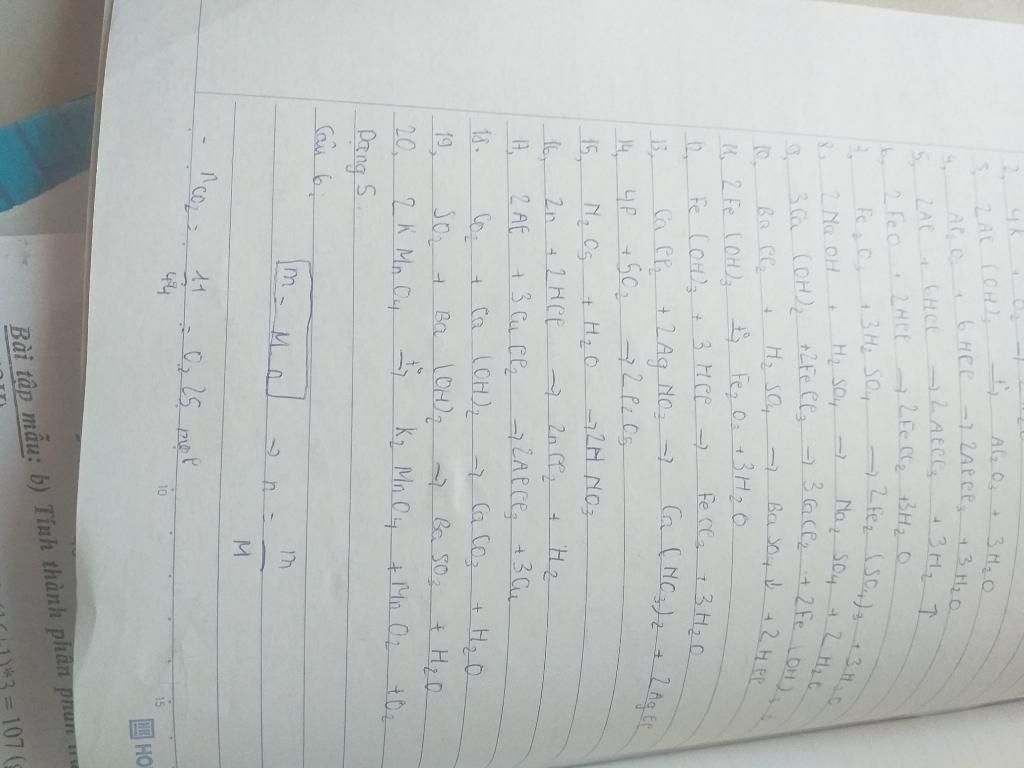 2, 4K + O2 →
3, 2Al(OH)3 t°→ Al2O3 + 3H2O
4, Al2O3 + 6HCl → 2AlCl3 + 3H2O
5, 2Al + 6HCl → 2AlCl3 + 3H2 ↑
6, 2FeO + 2HCl → 2FeCl2 + 3H2O
7, Fe2O3 + 3H2SO4 → 2Fe2(SO4)3 + 3H2O
8, 2NaOH + H2SO4 → Na2SO4 + 2H2O
9, 3Ca(OH)2 + 2FeCl3 → 3CaCl2 + 2Fe(OH)3↓
10, BaCl2 + H2SO4 → BaSO4↓ + 2HCl
11, 2Fe(OH)3 t°→ Fe2O3 + 3H2O
12, Fe(OH)3 + 3HCl → FeCl3 + 3H2O
13, CaCl2 + 2AgNO3 → Ca(NO3)2 + 2AgCl
14, 4P + 5O2 → 2P2O5
15, N2O5 + H2O → 2HNO3
16, Zn + 2HCl → ZnCl2 + H2
17, 2Al + 3CuCl2 → 2AlCl3 + 3Cu
18. CO2 + Ca(OH)2 → CaCO3 + H2O
19, SO2 + Ba(OH)2 → BaSO3 + H2O
20, 2KMnO4 t°→ K2MnO4 + MnO2 + O2
Dạng 5:
Câu 6:
m = M.n → n = m/M
- nCO2 = 11/44 = 0,25 mol
10
15
HO
Bài tập mẫu: b) Tính thành phần phần
*3 = 107 (